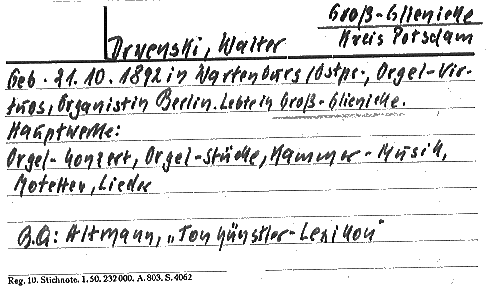 Groß-Glienicke
Kreis Potsdam
Drwenski, Walter
Geb. 21.10.1892 in Wartenburg/Ostpr., Orgel-Vir-
tuos, Organist in Berlin. Lebte in Groß-Glienicke.
Hauptwerke:
Orgel-Konzert, Orgel-Stücke, Kammer-Musik,
Motetten, Lieder
B.Q: Altmann, „Tonkünstler-Lexikon"
Reg. 10. Stichnote. 1. 50. 232000. A. 803. S. 4062